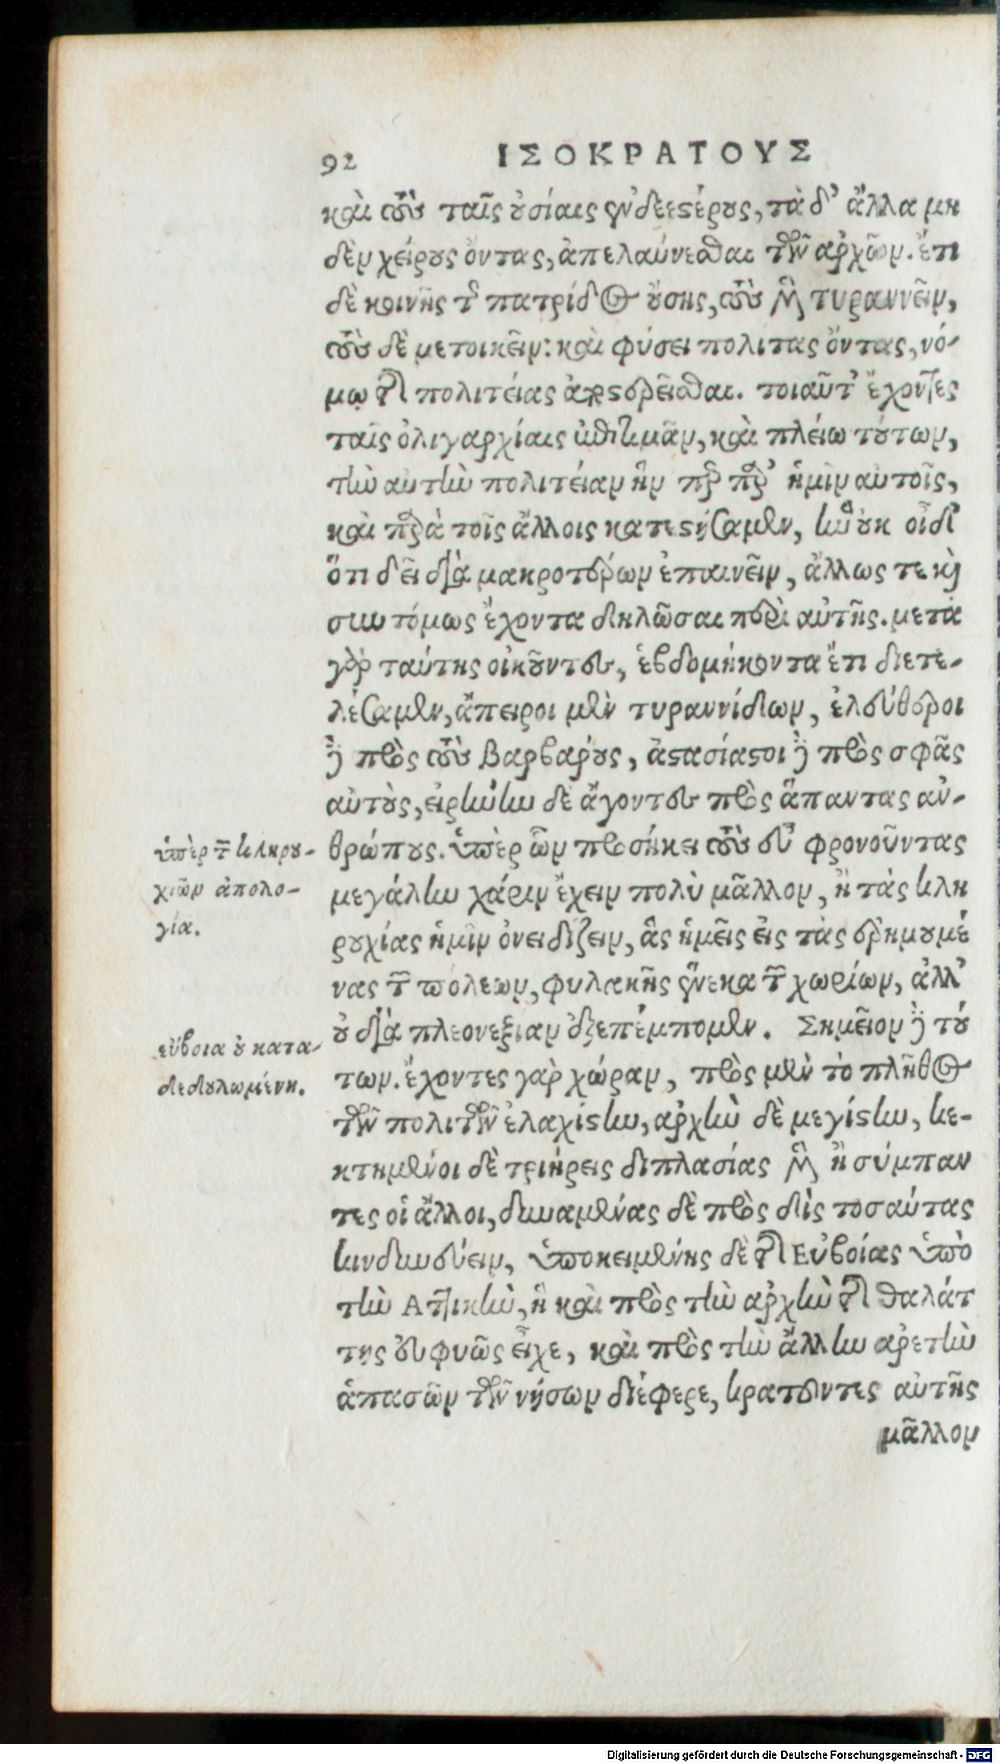 92 ΙΣΟΚΡΑΤΟΥΣ
καὶ τοὺς ταῖς οὐσίαις ἐνδεεστέρους, τὰ δ' ἄλλα μη
δὲν χείρους ὄντας, ἀπελαύνεσθαι τῶν ἀρχῶν. ἔτι
δὲ κοινῆς τῆς πατρίδος οὔσης, τοὺς μὲν τυραννεῖν,
τοὺς δὲ μετοικεῖν: καὶ φύσει πολιτας ὄντας, νό-
μῳ τῆς πολιτείας ἀποστερεῖσθαι. τοιαῦτ' ἔχοντες
ταῖς ὀλιγαρχίαις ἐπιτιμᾶν, καὶ πλείω τούτων,
τὴν αυτὴν πολιτείαν ἣν περ παρ' ἡμῖν αὐτοῖς,
καὶ παρὰ τοῖς ἄλλοις κατεστήσαμεν, ἣν οὐκ οἶδ'
ὅτι δεῖ διὰ μακροτέρων ἐπαινεῖν, ἄλλως τε καὶ
συντόμως ἔχοντα δηλῶσαι περὶ αὐτῆς. μετὰ
γὰρ ταύτης οἰκοῦντες, ἑβδομήκοντα ἔτι διετε-
λέσαμεν, ἄπειροι μὲν τυραννίδων, ἐλεύθεροι
δὲ πρὸς τοὺς βαρβάρους, ἀστασίαστοι δὲ πρὸς σφᾶς
αὐτοὺς, εἰρήνην δὲ ἄγοντες πρὸς ἅπαντας ἀν-
θρώπους. ὑπὲρ ὧν προσήκει τοὺς εὖ φρονοῦντας
μεγάλην χάριν ἔχειν πολὺ μᾶλλον, ἢ τὰς κλη
ρουχίας ἡμῖν ὀνειδίζειν, ἃς ἡμεῖς εἰς τὰς ἐρημουμέ
νας τῶν πόλεων, φυλακῆς ἕνεκα τῶν χωρίων, ἀλλ'
οὐ διὰ πλεονεξιαν ἐξεπέμπομεν. Σημεῖον δὲ τού
των. ἔχοντες γαρ χώραν, πρὸς μὲν τὸ πλῆθος
τῶν πολιτῶν ἐλαχίστην, ἀρχὴν δὲ μεγίστην, κε-
κτημένοι δὲ τριήρεις διπλασίας μὲν ἢ σύμπαν
τες οἱ ἄλλοι, δυναμένας δὲ πρὸς δὶς τοσαύτας
κινδυνεύειν, ὑποκειμένης δὲ τῆς Εὐβοίας ὑπὸ
τὴν Αττικὴν, ἣ καὶ πρὸς τὴν ἀρχὴν τῆς θαλάτ
της εὐφυῶς εἶχε, καὶ πρὸς τὴν ἄλλην αρετὴν
ἁπασῶν τῶν νήσων διέφερε, κρατοῦντες αὐτῆς
μᾶλλον
ὑπὲρ τῶν κληρου-
χιῶν ἀπολο-
γία.
εὔβοια οὐ κατα-
δεδουλωμένη.
Digitalisierung gefördert durch die Deutsche Forschungsgemeinschaft - DFG